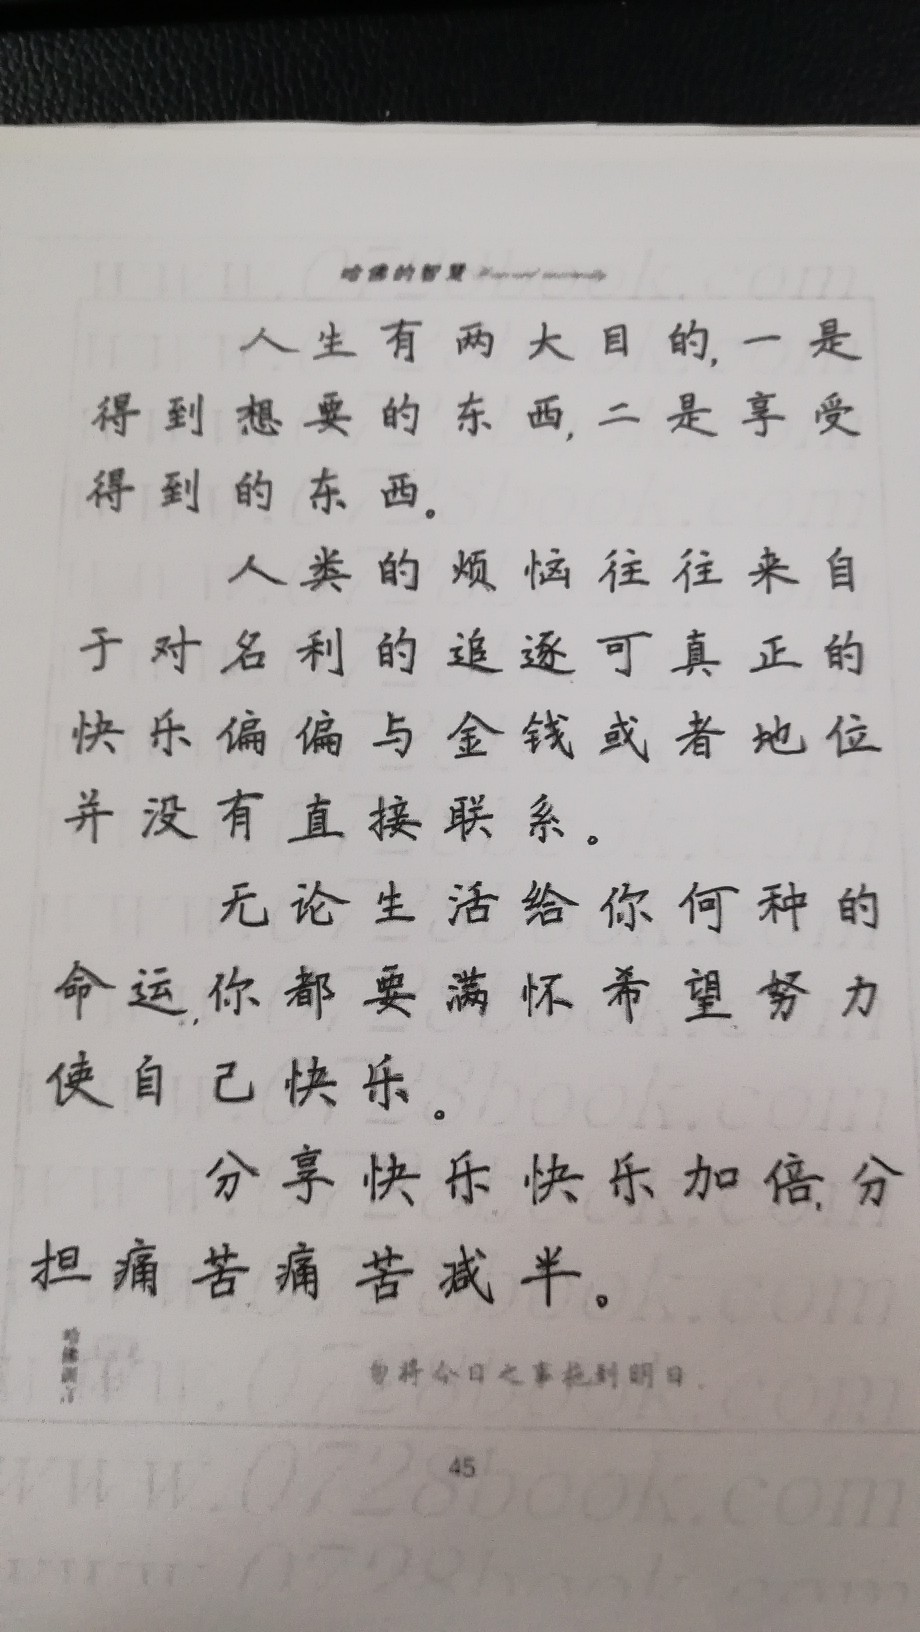 哈佛的智慧
人生有两大目的,一是
得到想要的东西,二是享受
得到的东西。
人类的烦恼往往来自
于对名利的追逐可真正的
快乐偏偏与金钱或者地位
并没有直接联系。
无论生活给你何种的
命运,你都要满怀希望努力
使自己快乐。
分享快乐快乐加倍,分
担痛苦痛苦减半。
哈佛训言
勿将今日之事拖到明日.
45
www.0728book.com